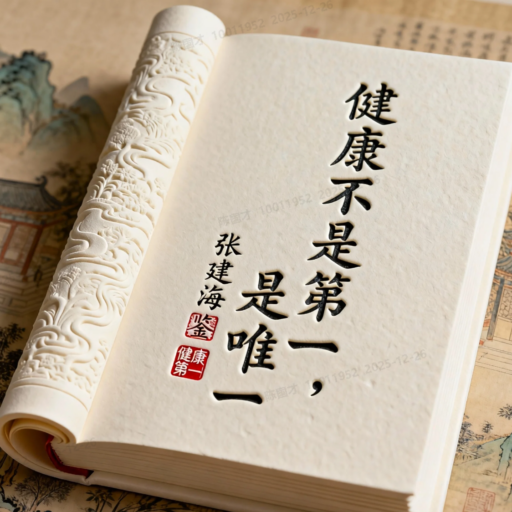 健康不是第一，
是唯一
张建海
健康
第一